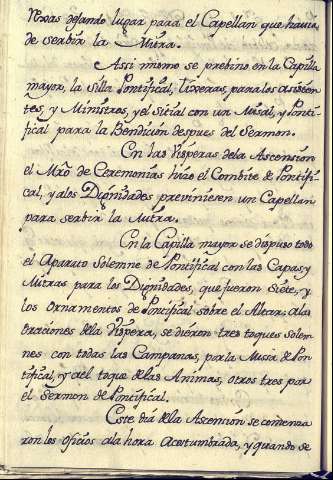 dejando lugar para el Capellan que havia
de serbir la Mitra.
Assi mismo se prebino en la Capilla
mayor, la Silla Pontifical, para los assisten
tes, y Ministros, y el Sitial con un Misal, y Ponti-
fical para la Bendicion despues del Sermon.
En las Visperas de la Ascension
el Mro de Ceremonias hizo el Combite de Pontifi-
cal, y alos Dignidades previniesen un Capellan
para serbir la Mitra.
En la Capilla mayor se dispuso todo
el Aparato Solemne de Pontifical con las Capas y
Mitras para los Dignidades, que fueron Siete, y
los Ornamentos de Pontifical sobre el Altar: alas
Oraciones dela Vispera, se dieron tres toques Solem
nes con todas las Campanas, por la Missa de Pon
tifical, y al toque de las Animas, otros tres por
el Sermon de Pontifical.
Este dia dela Ascensión se comenza
ron los oficios ala hora acostumbrada, y quando se